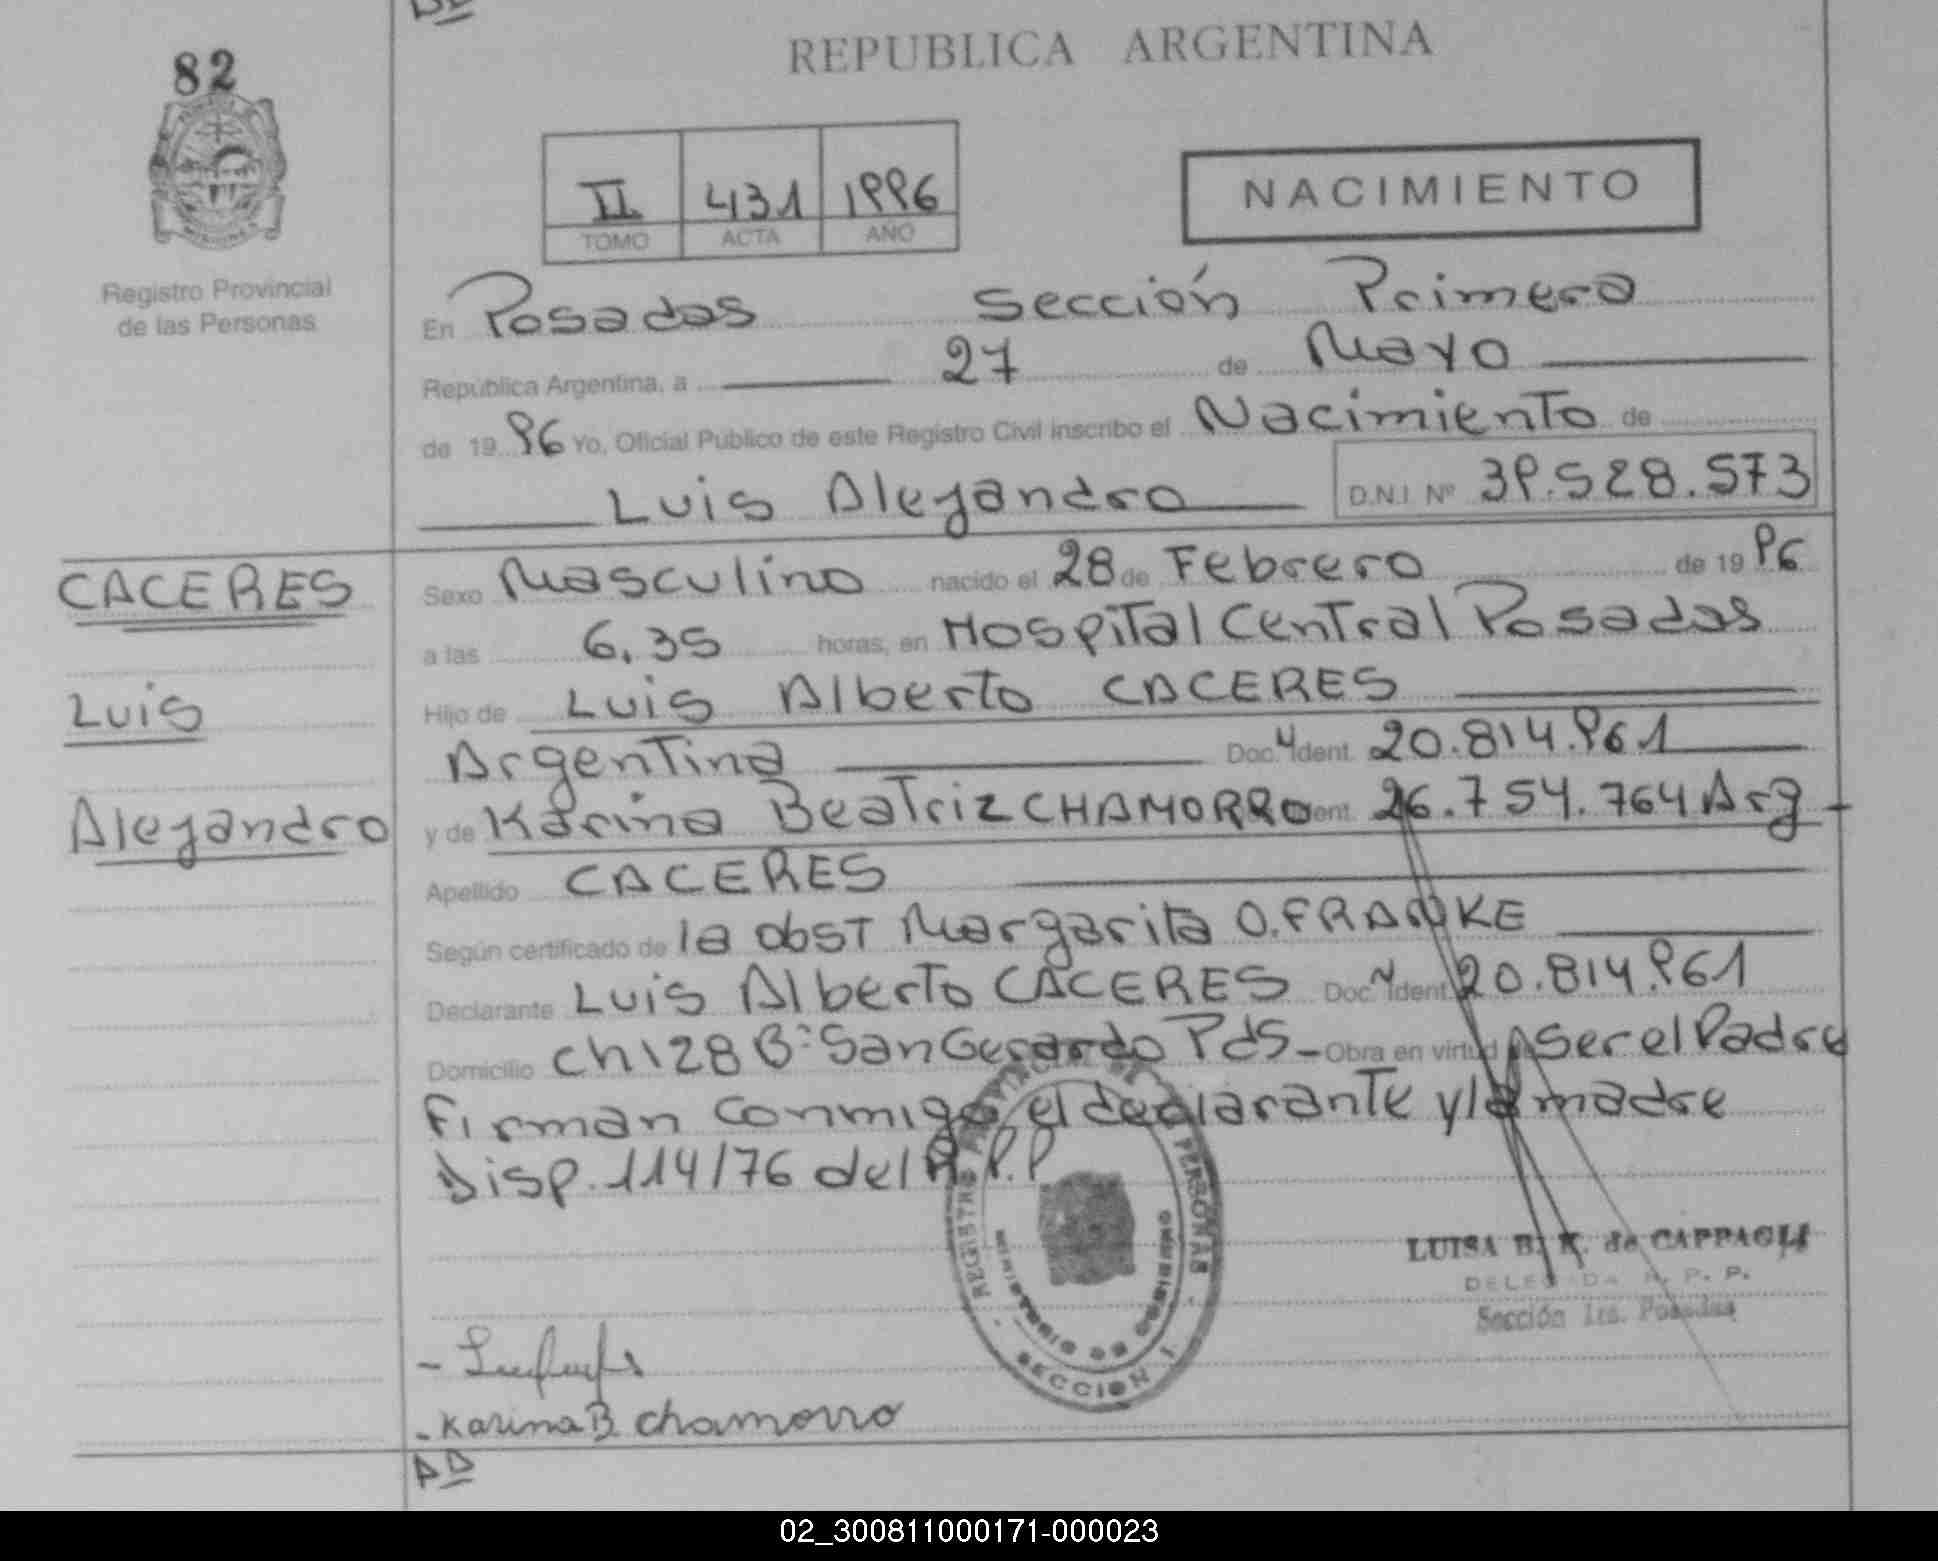 82
REPUBLICA ARGENTINA
II 431 1996
TOMO ACTA AÑO
NACIMIENTO
Registro Provincial
de las Personas
En Posadas Sección Primera
República Argentina, a 27 de Mayo
de 1996 Yo, Oficial Público de este Registro Civil inscribo el Nacimiento de
Luis Alejandro D.N.I. Nº 39.528.573
CACERES
Luis
Alejandro
Sexo Masculino nacido el 28 de Febrero de 1996
a las 6,35 horas, en Hospital Central Posadas
Hijo de Luis Alberto CACERES
Argentina Doc. Ident. 20.814.961
y de Karina Beatriz CHAMORRO ent. 26.754.764 Arg
Apellido CACERES
Según certificado de la obst Margarita O. FRANKE
Declarante Luis Alberto CACERES Doc. Ident. 20.814.961
Domicilio Ch 128 Bº San Gerardo Pds - Obra en virtud Ser el Padre
Firman conmigo el declarante y la madre
Disp. 114/76 del R.P.P
REGISTRO PROVINCIAL DE PERSONAS
MINISTERIO DE GOBIERNO
SECCION 1
LUISA B. K. de CAPPAGLI
DELEGADA R. P. P.
Sección 1ra. Posadas
- Karina B. Chamorro
AD
02_300811000171-000023